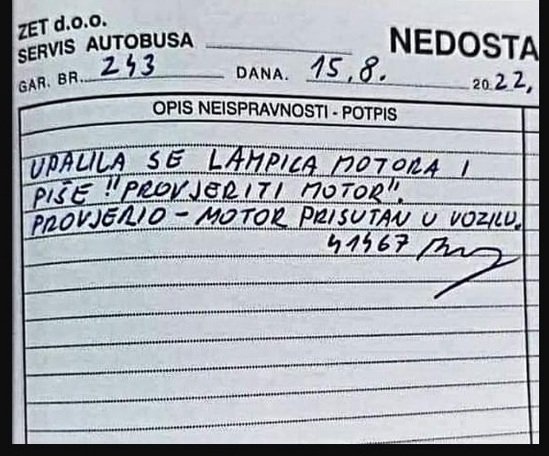 ZET d.o.o.
SERVIS AUTOBUSA
NEDOSTA
GAR. BR. 243 DANA. 15.8. 2022.
OPIS NEISPRAVNOSTI - POTPIS
UPALILA SE LAMPICA MOTORA I
PIŠE "PROVJERITI MOTOR".
PROVJERIO - MOTOR PRISUTAN U VOZILU.
41467